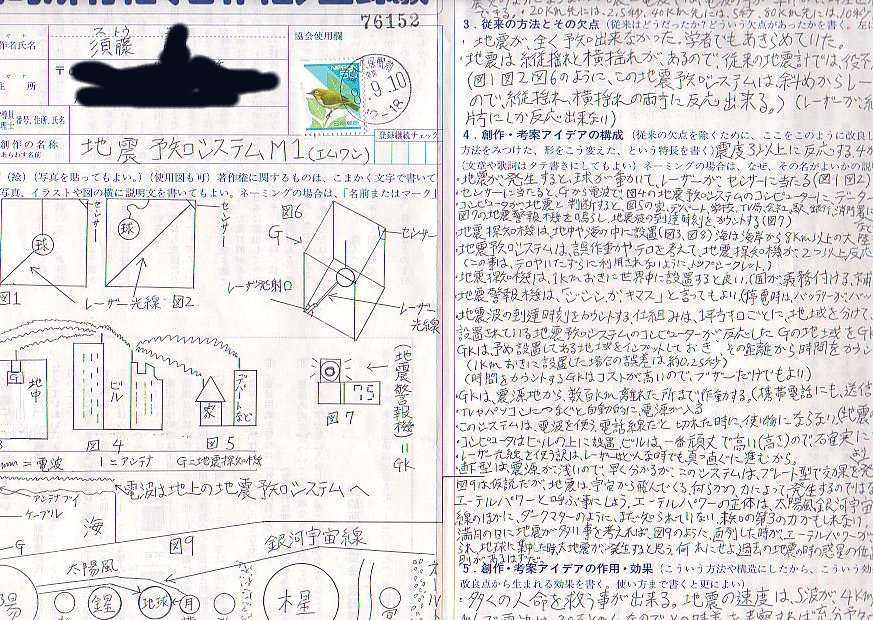 76152
ストウ
作者氏名
須藤
協会使用欄
〒
住 所
NIPPON
9.10
12-18
番号、住所、氏名
創作の名称
地震予知システムM1(エムワン)
登録継続チェック
(絵)(写真を貼ってもよい。)(使用図も可)著作権に関するものは、こまかく文字で書いて
写真、イラストや図の横に説明文を書いてもよい。ネーミングの場合は、「名前またはマーク」
センサー
球
図1
センサー
球
レーザー光線
図2
図6
G
センサー
レーザ発射口
レーザー光線
G
地中
ビル
図4
家
デパートなど
図5
75
図7
(地震警報機)=GK
=電波
I=アンテナ
G=地震探知機
アンテナブイ
ケーブル
海
G
電波は地上の地震予知システムへ
図9
銀河宇宙線
太陽風
陽
金星
地球
月
木星
・20km先には、2.5秒、40km先には、5秒、80km先には、10秒
3. 従来の方法とその欠点(従来はどうだったか?という欠点があったかを書く。
・地震が、全く予知出来なかった。学者でもあきらめていた。
・地震は縦揺れと横揺れが、あるので、従来の地震計では、
(図1図2図6のように、この地震予知システムは、斜めからレー
ので、縦揺れ、横揺れの両手に反応出来る。)(レーザーが
時にしか反応出来ない)
4. 創作・考案アイデアの構成(従来の欠点を除くために、ここをこのように改良し
方法をみつけた、形をこう変えた、という特長を書く)震度3以上に反応する。
(文章や歌詞はタテ書きにしてもよい)ネーミングの場合は、なぜ、その名がよいかの説
・地震が、発生すると、球が動いて、レーザーが、センサーに当たる(図1図2)
・センサーに当たると、Gから電波で、図4の地震予知システムのコンピューターに、データー
コンピューターが地震と判断すると、図5の家、デパート、学校、TV局、会社、駅、銀行、消防署
図7の地震警報機を鳴らし、地震波の到達時刻をカウントする(図7)
・地震探知機は、地中や海の中に設置(図3、図8)海は海岸から8km以上の大陸
・地震予知システムは、誤作動やテロを考えて、地震探知機が2つ以上反応
(この事は、テロやいたずらに利用されないようにトップシークレット)
・地震探知機は、1kmおきに世界中に設置すると良い(国が義務付ける、
・地震警報機は、「ジシンガキマス」と言ってもよい、(停電時は、バッテリーが
・地震波の到達時刻をカウントする仕組みは、1平方キロごとに、地域を分けて、
設置されている地震予知システムのコンピューターが反応したGの地域をGK
GKは、予め設置してある地域をインプットしておき、その距離から時間をカウン
(1kmおきに設置した場合の誤差は約0.25秒)
(時間をカウントするGKはコストが高いので、ブザーだけでもよい)
・GKは、震源地から、数百km離れた所まで作動する、(携帯電話にも、送信
・TVやパソコンにつなぐと自動的に、電源が入る
・このシステムは、電波を使う、電話線だと、切れた時に、使い物にならない、(地震の
・コンピューターはビルの上に設置、ビルは、一番頑丈で高い(高さ)ので、確実に
・レーザー光線を使う訳は、レーザーはどんな時でも真っ直ぐに進むから。
・直下型は、震源が、浅いので、早く分かるが、このシステムは、プレート型で効果を発
図9は仮説だが、地震は、宇宙から飛んでくる、何らかの力によって、発生するのでは
エーテルパワーと呼ぶ事にしよう。エーテルパワーの正体は、太陽風、銀河宇宙
線のほかに、ダークマターのように、まだ知られていない、未知の第3の力かもしれない。
満月の日に地震が多い事を考えれば、図9のように、直列した時が、エーテルパワーが
られ、地球に集中した時、大地震が発生すると思う。何れにせよ過去の地震の時の惑星の位
則があるはずだ。
5. 創作・考案アイデアの作用・効果(こういう方法や構造にしたから、こういう効
改良点から生まれる効果を書く。使い方まで書くと更によい)
・多くの人命を救う事が出来る。地震の速度は、S波が、4km